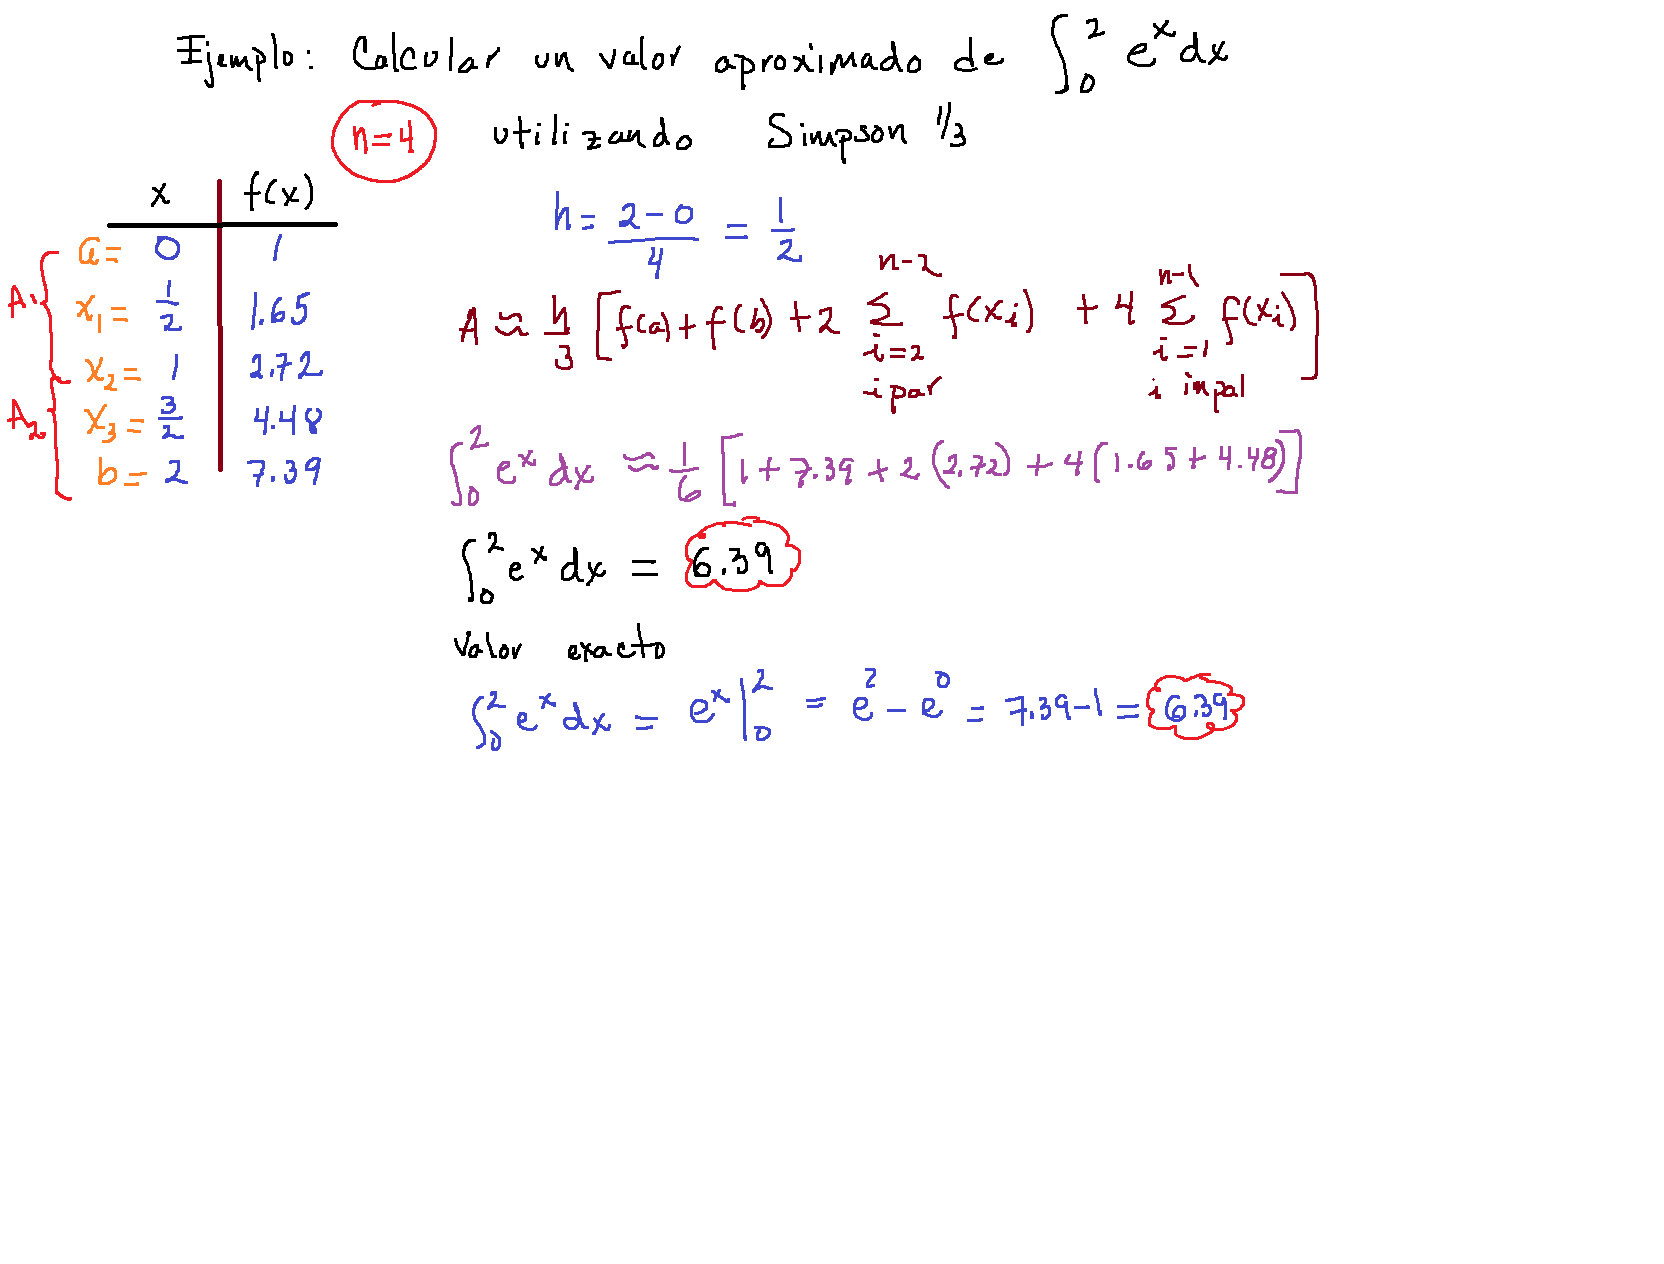 Ejemplo: Calcular un valor aproximado de ∫₀² eˣ dx
n=4 utilizando Simpson 1/3
x f(x)
a= 0 1
x₁= 1/2 1.65
x₂= 1 2.72
x₃= 3/2 4.48
b= 2 7.39
A₁
A₂
h= (2-0)/4 = 1/2
A ≈ h/3 [f(a)+f(b)+2 Σ f(xᵢ) + 4 Σ f(xᵢ)]
n-2 n-1
i=2 i=1
i par i impal
∫₀² eˣ dx ≈ 1/6 [1+7.39+2(2.72)+4(1.65+4.48)]
∫₀² eˣ dx = 6.39
Valor exacto
∫₀² eˣ dx = eˣ|₀² = e² - e⁰ = 7.39-1 = 6.39